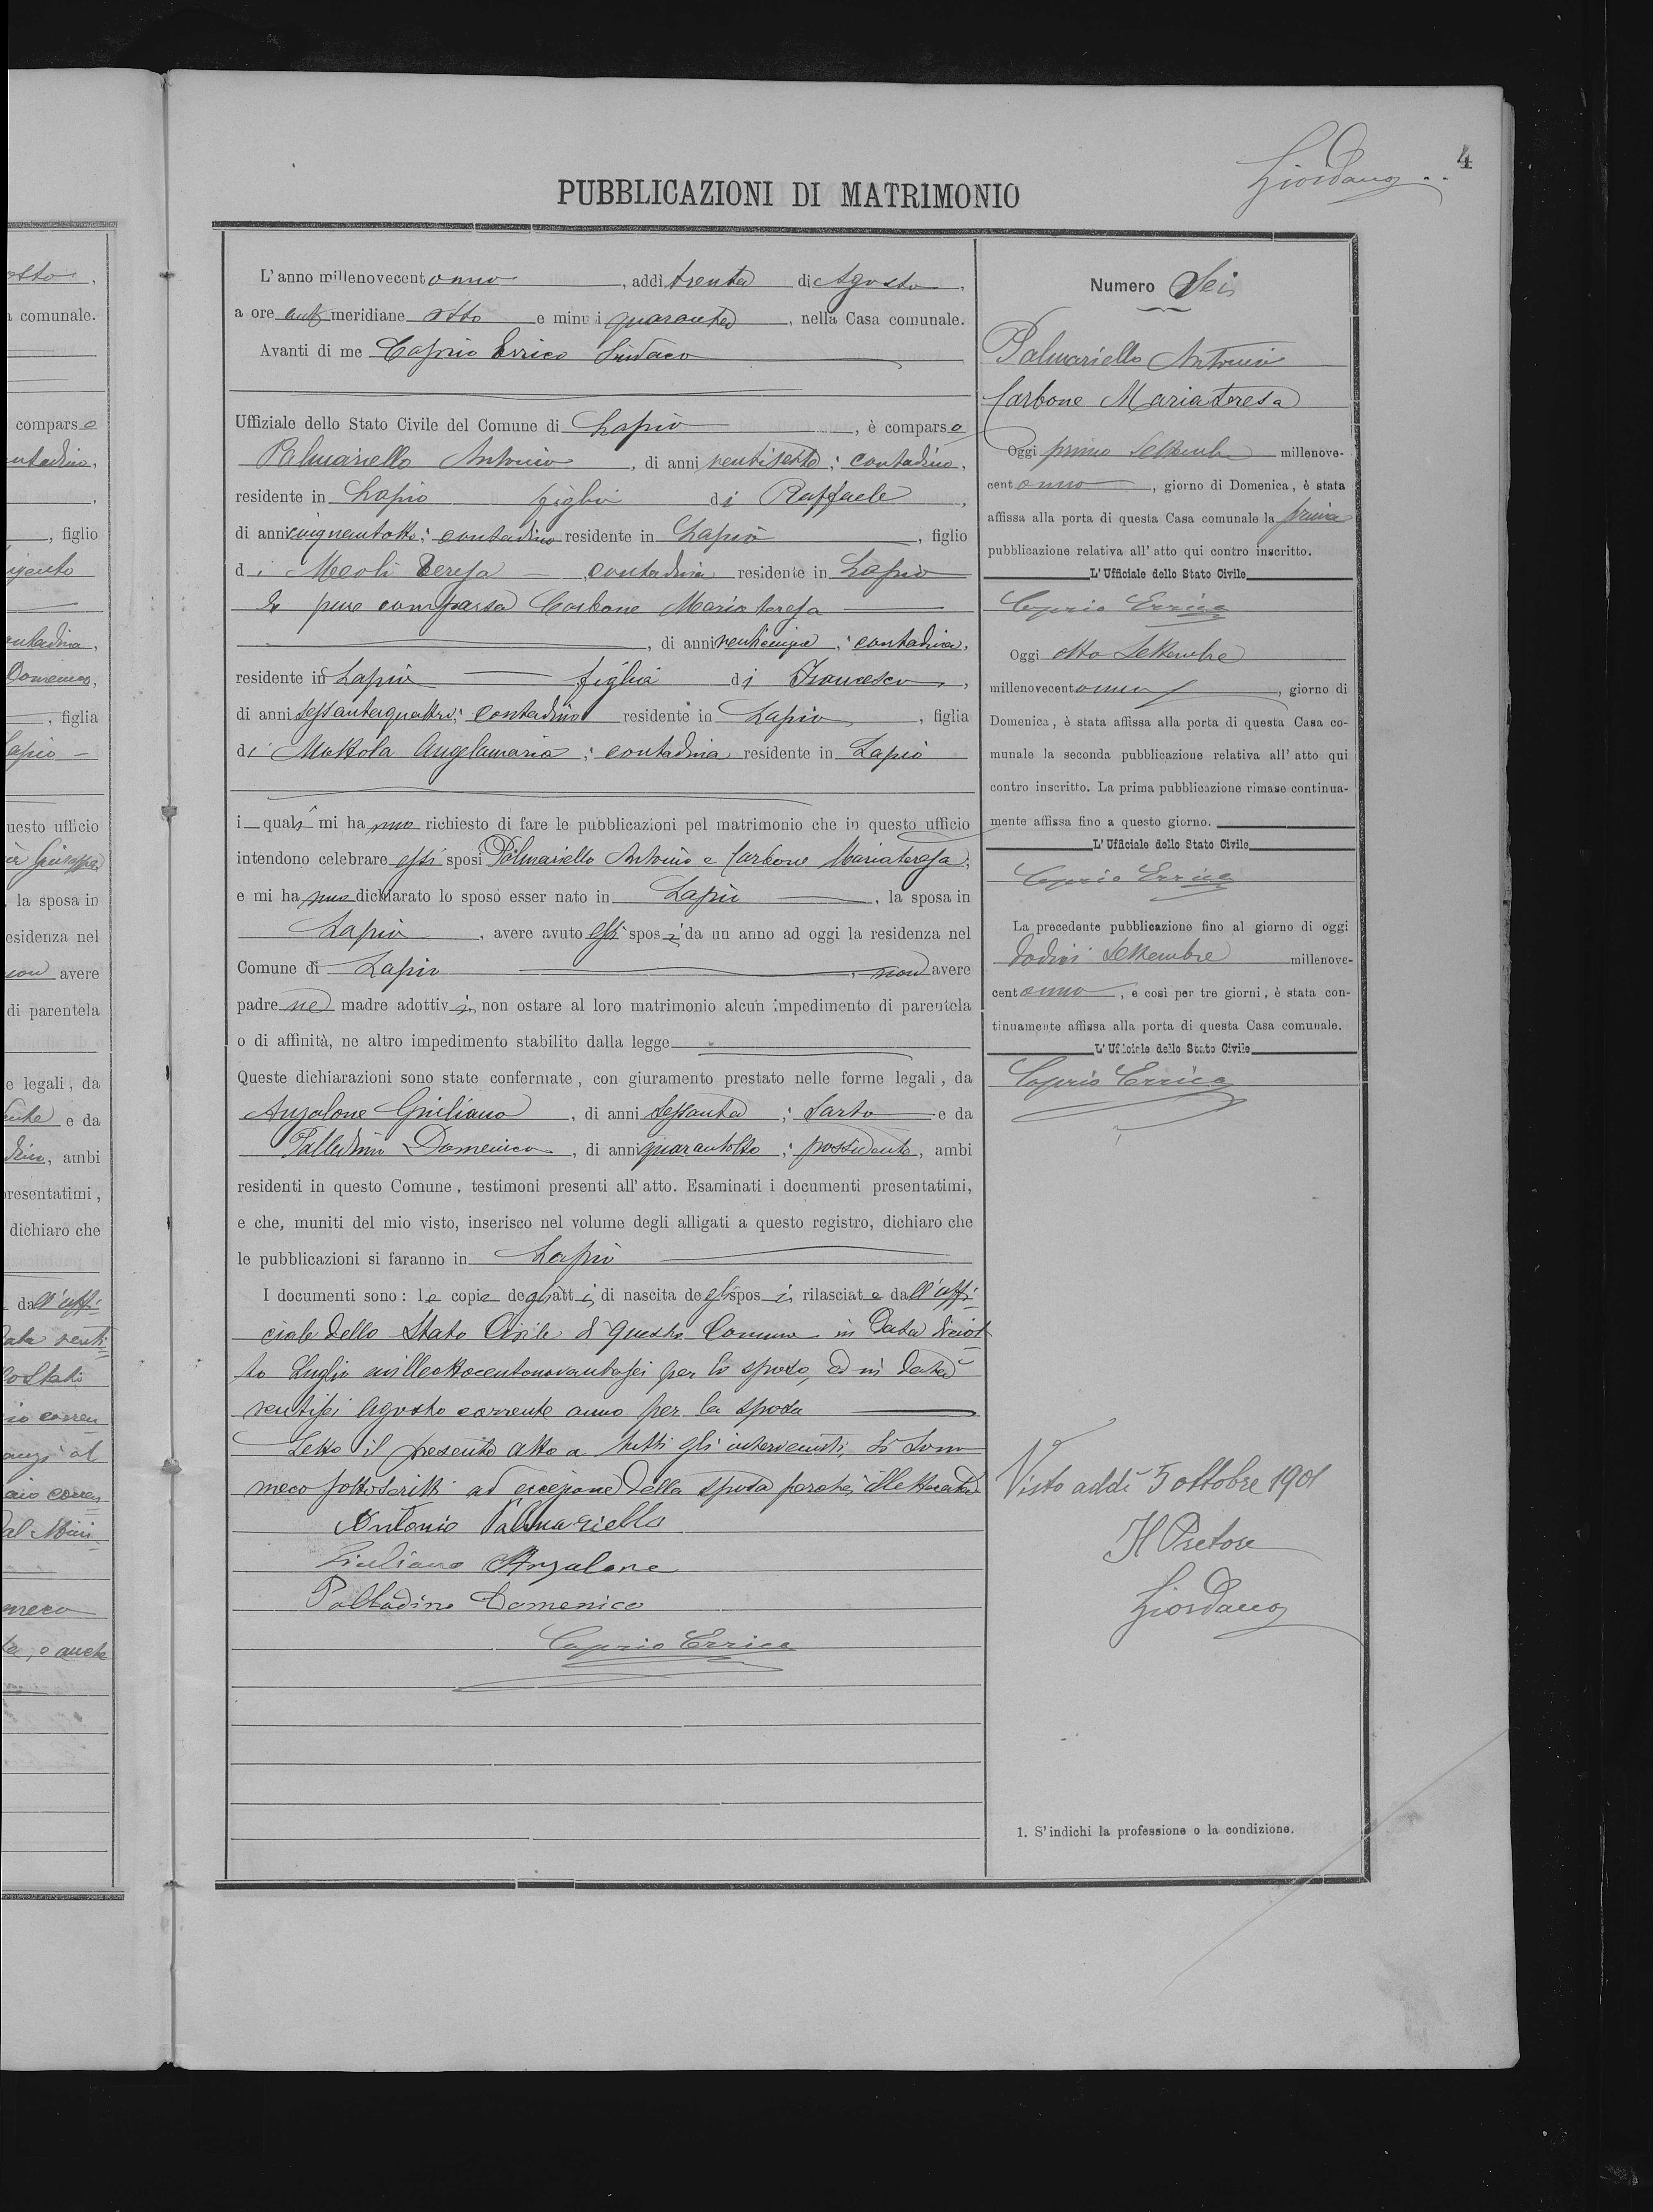 otto,
a comunale.
compars e
contadino,
, figlio
contadina,
Domenico,
, figlia
Lapio
questo ufficio
Giuseppa
, la sposa in
residenza nel
non avere
di parentela
e legali, da
e da
, ambi
presentatimi,
dichiaro che
dall'uffi-
data venti-
corren-
anzi al
, e anche
4
Giordano
PUBBLICAZIONI DI MATRIMONIO
L'anno millenovecent onuno, addì trenta di Agosto,
a ore anti meridiane otto e minuti quaranta, nella Casa comunale.
Avanti di me Caprio Errico Sindaco
Uffiziale dello Stato Civile del Comune di Lapio, è compars o
Palmariello Antonio, di anni ventisette; contadino,
residente in Lapio figlio di Raffaele,
di anni cinquantotto; contadino residente in Lapio, figlio
di Meoli Teresa contadina residente in Lapio
È pure comparsa Carbone Mariateresa
, di anni venticinque; contadina,
residente in Lapio figlia di Francesco,
di anni sessantaquattro; contadino residente in Lapio, figlia
di Mottola Angelamaria; contadina residente in Lapio
i quali mi ha nno richiesto di fare le pubblicazioni pel matrimonio che in questo ufficio
intendono celebrare essi sposi Palmariello Antonio e Carbone Mariateresa;
e mi ha nno dichiarato lo sposo esser nato in Lapio, la sposa in
Lapio, avere avuto essi spos i da un anno ad oggi la residenza nel
Comune di Lapio, non avere
padre nè madre adottiv i, non ostare al loro matrimonio alcun impedimento di parentela
o di affinità, ne altro impedimento stabilito dalla legge
Queste dichiarazioni sono state confermate, con giuramento prestato nelle forme legali, da
Anzalone Giuliano, di anni sessanta; Sarto e da
Palladino Domenico, di anni quarantotto; possidente, ambi
residenti in questo Comune, testimoni presenti all'atto. Esaminati i documenti presentatimi,
e che, muniti del mio visto, inserisco nel volume degli alligati a questo registro, dichiaro che
le pubblicazioni si faranno in Lapio
I documenti sono: le copie degli atti di nascita degli sposi, rilasciate dall'uffi-
ciale dello Stato Civile di questo Comune in data diciot-
to Luglio milleottocentonovantasei per lo sposo, ed in data
ventisei Agosto corrente anno per la sposa
Letto il presente atto a tutti gli intervenuti, si sono
meco sottoscritti ad eccezione della sposa perchè illetterata
Antonio Palmariello
Giuliano Anzalone
Palladino Domenico
Caprio Errico
Numero Sei
Palmariello Antonio
Carbone Mariateresa
Oggi primo Settembre millenove-
cent onuno, giorno di Domenica, è stata
affissa alla porta di questa Casa comunale la prima
pubblicazione relativa all'atto qui contro inscritto.
L'Ufficiale dello Stato Civile
Caprio Errico
Oggi otto Settembre
millenovecent onuno, giorno di
Domenica, è stata affissa alla porta di questa Casa co-
munale la seconda pubblicazione relativa all'atto qui
contro inscritto. La prima pubblicazione rimase continua-
mente affissa fino a questo giorno.
L'Ufficiale dello Stato Civile
Caprio Errico
La precedente pubblicazione fino al giorno di oggi
dodici Settembre millenove-
cent onuno, e così per tre giorni, è stata con-
tinuamente affissa alla porta di questa Casa comunale.
L'Ufficiale dello Stato Civile
Caprio Errico
Visto addì 5 ottobre 1901
Il Pretore
Giordano
1. S'indichi la professione o la condizione.